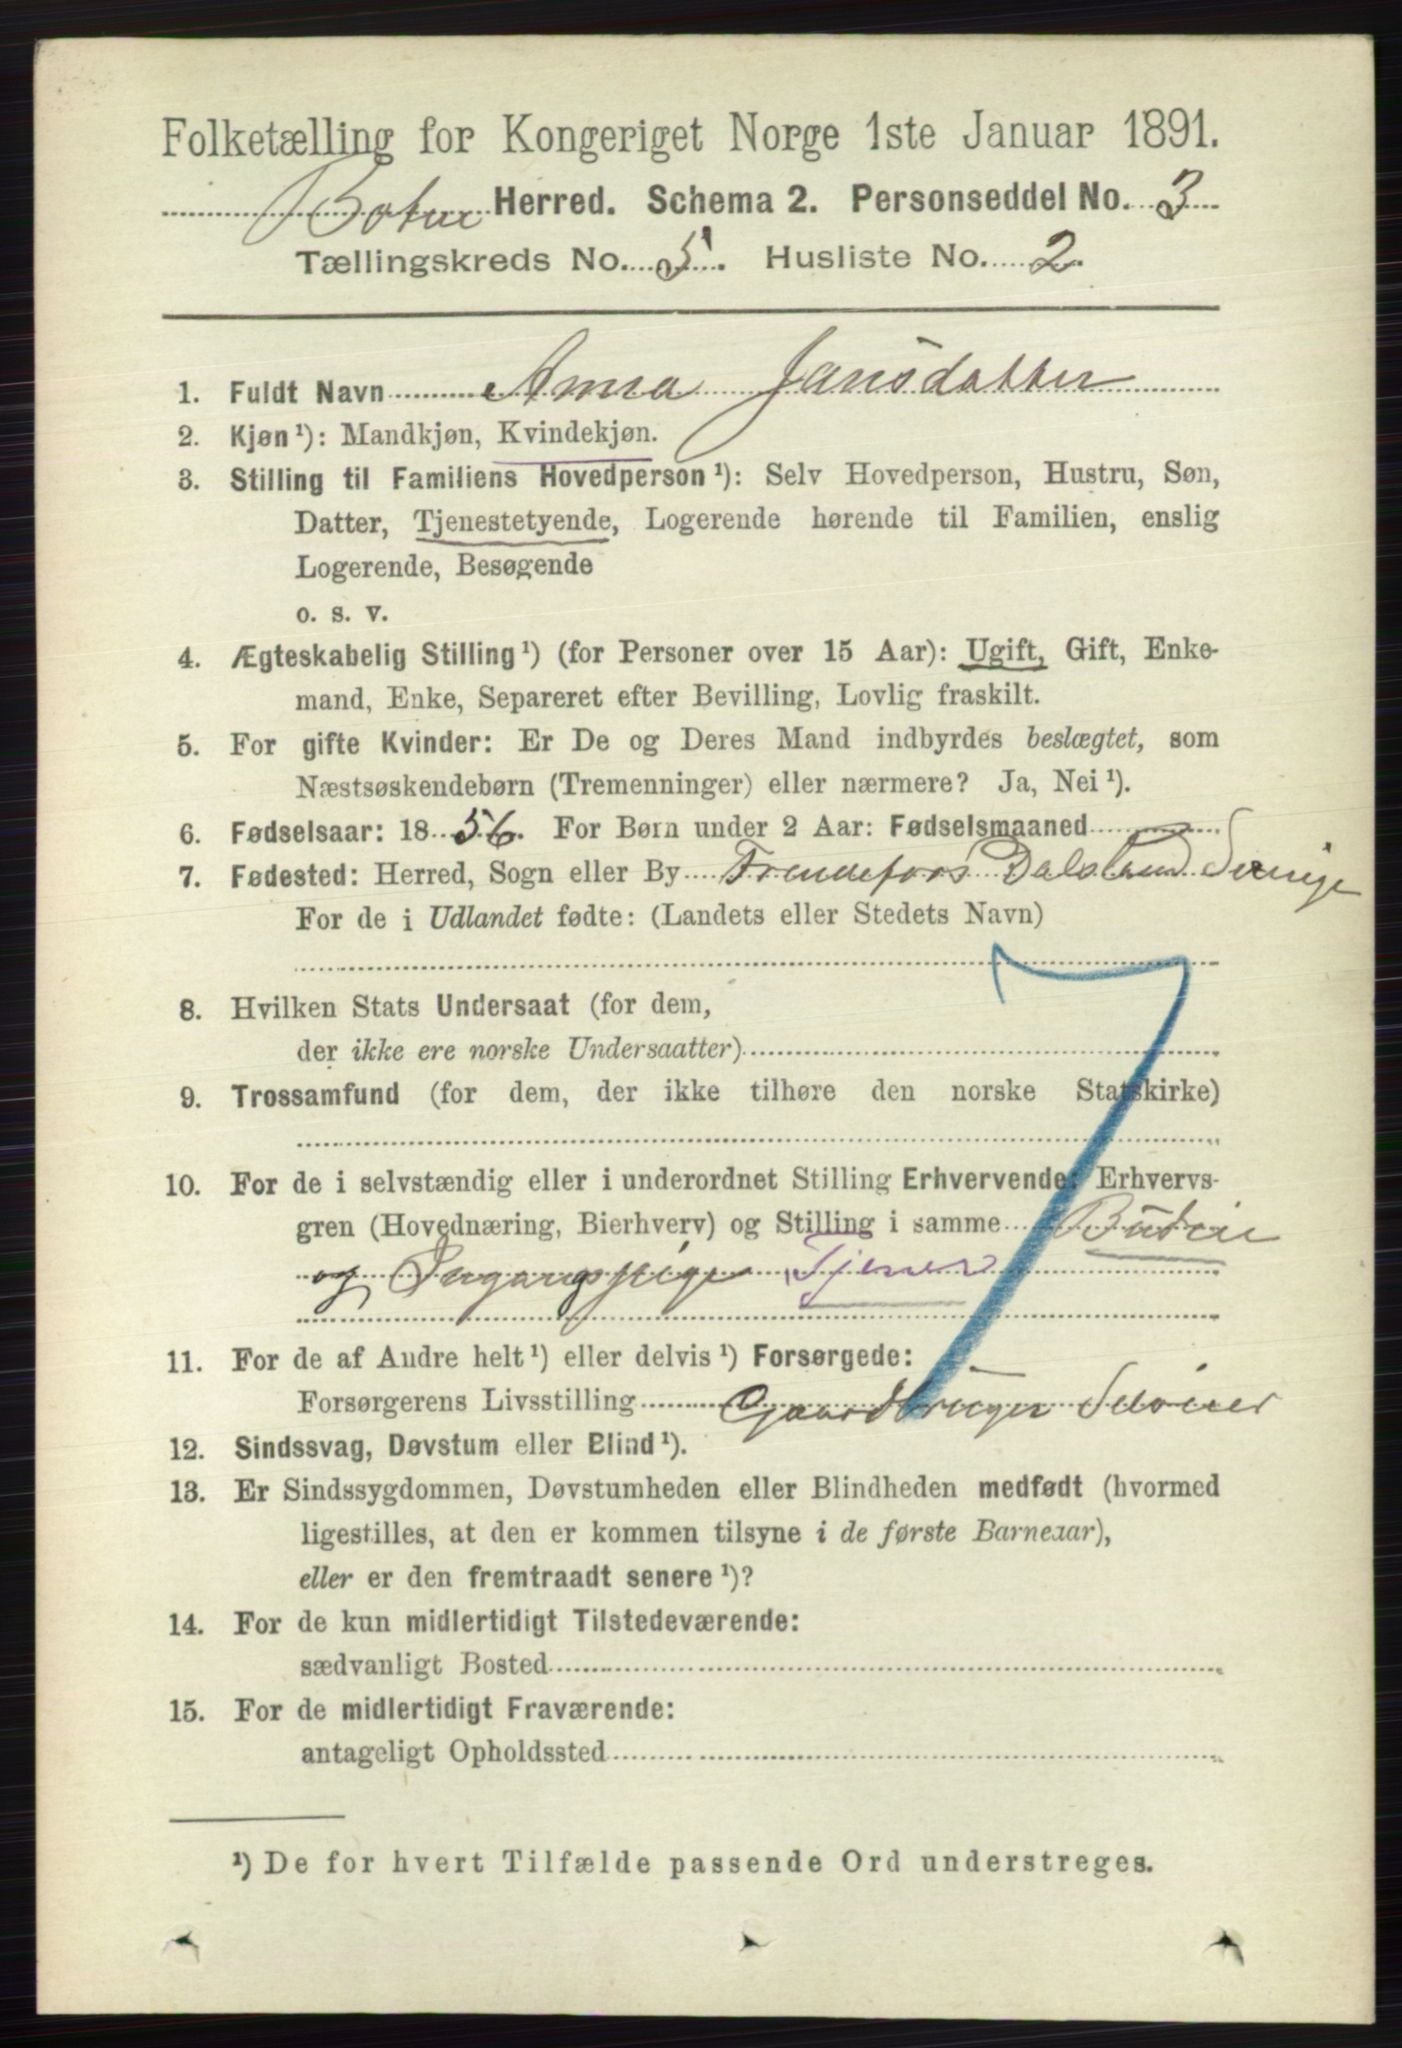 Folketælling for Kongeriget Norge 1ste Januar 1891.
Botne Herred. Schema 2. Personseddel No. 3
Tællingskreds No. 5. Husliste No. 2.
1. Fuldt Navn Anna Jansdatter
2. Kjøn¹): Mandkjøn, Kvindekjøn.
3. Stilling til Familiens Hovedperson¹): Selv Hovedperson, Hustru, Søn,
Datter, Tjenestetyende, Logerende hørende til Familien, enslig
Logerende, Besøgende
o. s. v.
4. Ægteskabelig Stilling¹) (for Personer over 15 Aar): Ugift, Gift, Enke-
mand, Enke, Separeret efter Bevilling, Lovlig fraskilt.
5. For gifte Kvinder: Er De og Deres Mand indbyrdes beslægtet, som
Næstsøskendebørn (Tremenninger) eller nærmere? Ja, Nei¹).
6. Fødselsaar: 1856. For Børn under 2 Aar: Fødselsmaaned
7. Fødested: Herred, Sogn eller By Dalsland Sverige
For de i Udlandet fødte: (Landets eller Stedets Navn)
8. Hvilken Stats Undersaat (for dem,
der ikke ere norske Undersaatter)
9. Trossamfund (for dem, der ikke tilhøre den norske Statskirke)
10. For de i selvstændig eller i underordnet Stilling Erhvervende: Erhvervs-
gren (Hovednæring, Bierhverv) og Stilling i samme
og Tjener
11. For de af Andre helt¹) eller delvis¹) Forsørgede:
Forsørgerens Livsstilling Gaardbruger Selveier
12. Sindssvag, Døvstum eller Blind¹).
13. Er Sindssygdommen, Døvstumheden eller Blindheden medfødt (hvormed
ligestilles, at den er kommen tilsyne i de første Barneaar),
eller er den fremtraadt senere¹)?
14. For de kun midlertidigt Tilstedeværende:
sædvanligt Bosted
15. For de midlertidigt Fraværende:
antageligt Opholdssted
7
¹) De for hvert Tilfælde passende Ord understreges.